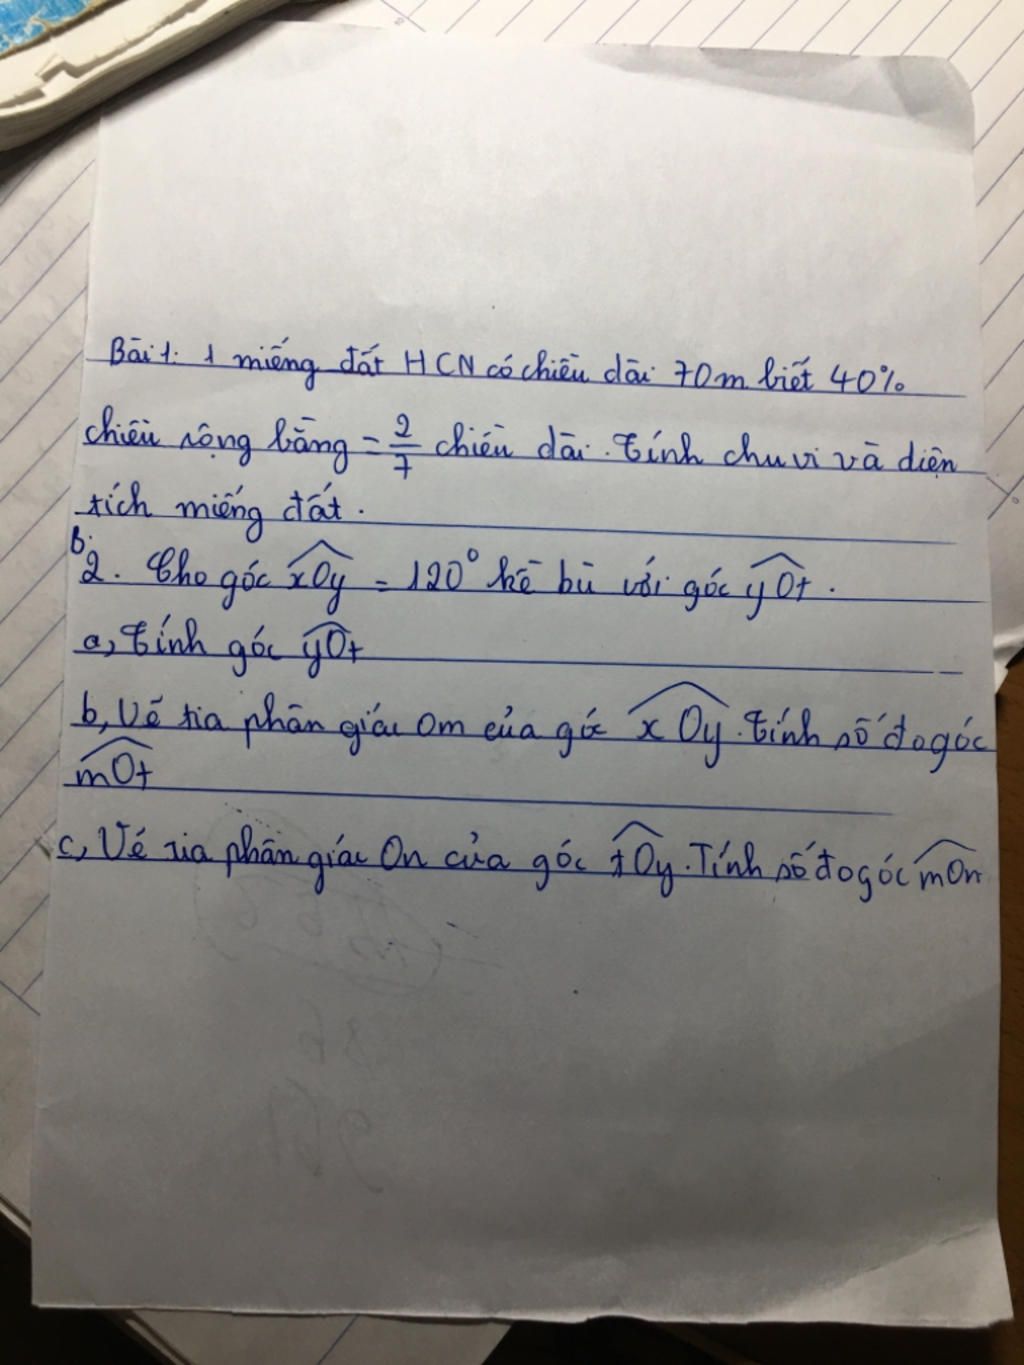 Bài 1: 1 miếng đất HCN có chiều dài 70m biết 40%
chiều rộng bằng = 2/7 chiều dài. Tính chu vi và diện
tích miếng đất.
B:
2. Cho góc xOy = 120° kề bù với góc yOt.
a, Tính góc yOt
b, Vẽ tia phân giác Om của góc xOy. Tính số đo góc
mOt
c, Vẽ tia phân giác On của góc tOy. Tính số đo góc mOn